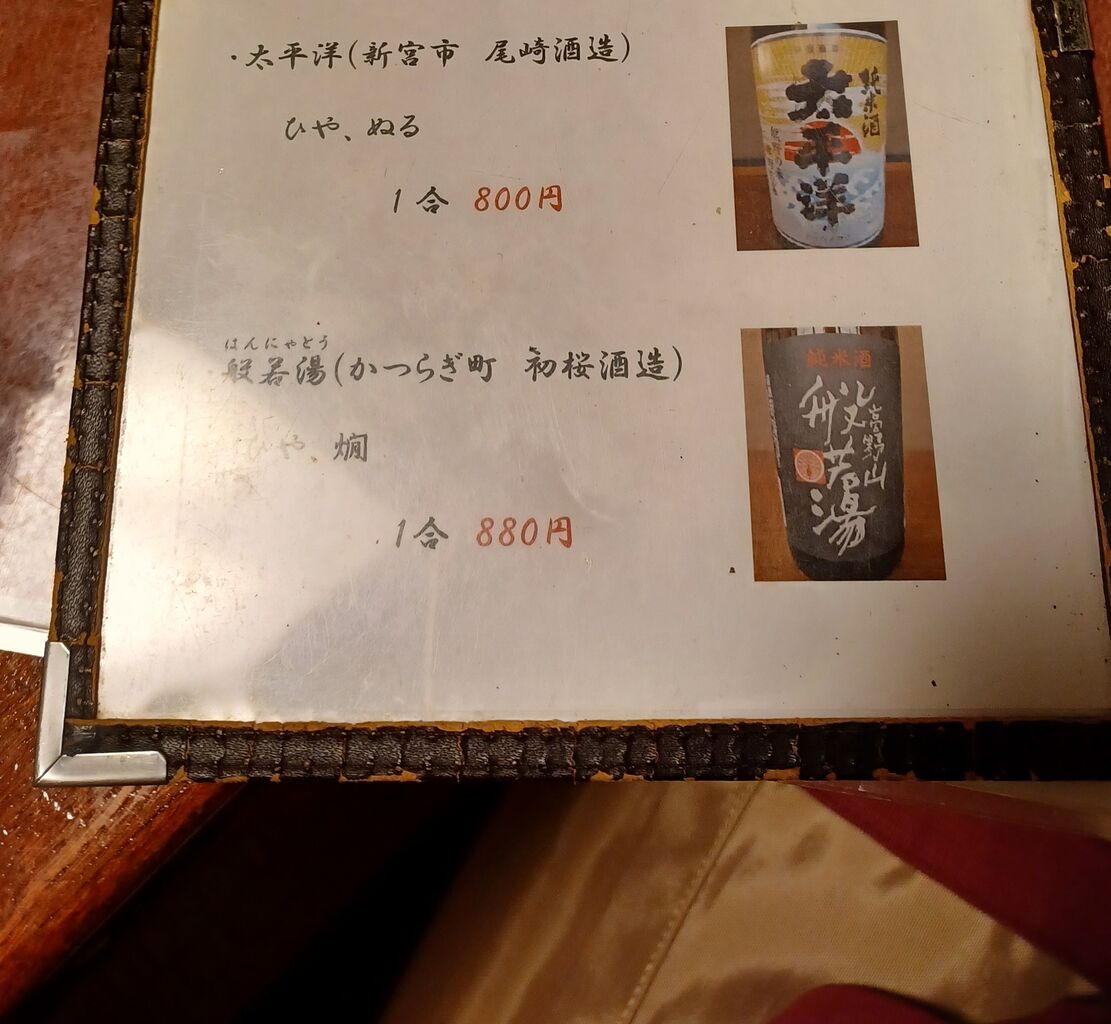 ・太平洋(新宮市 尾崎酒造)
ひや、ぬる
1合 800円
純米酒
太平洋
はんにゃとう
般若湯(かつらぎ町 初桜酒造)
ひや、燗
1合 880円
純米酒
高野山
般若湯